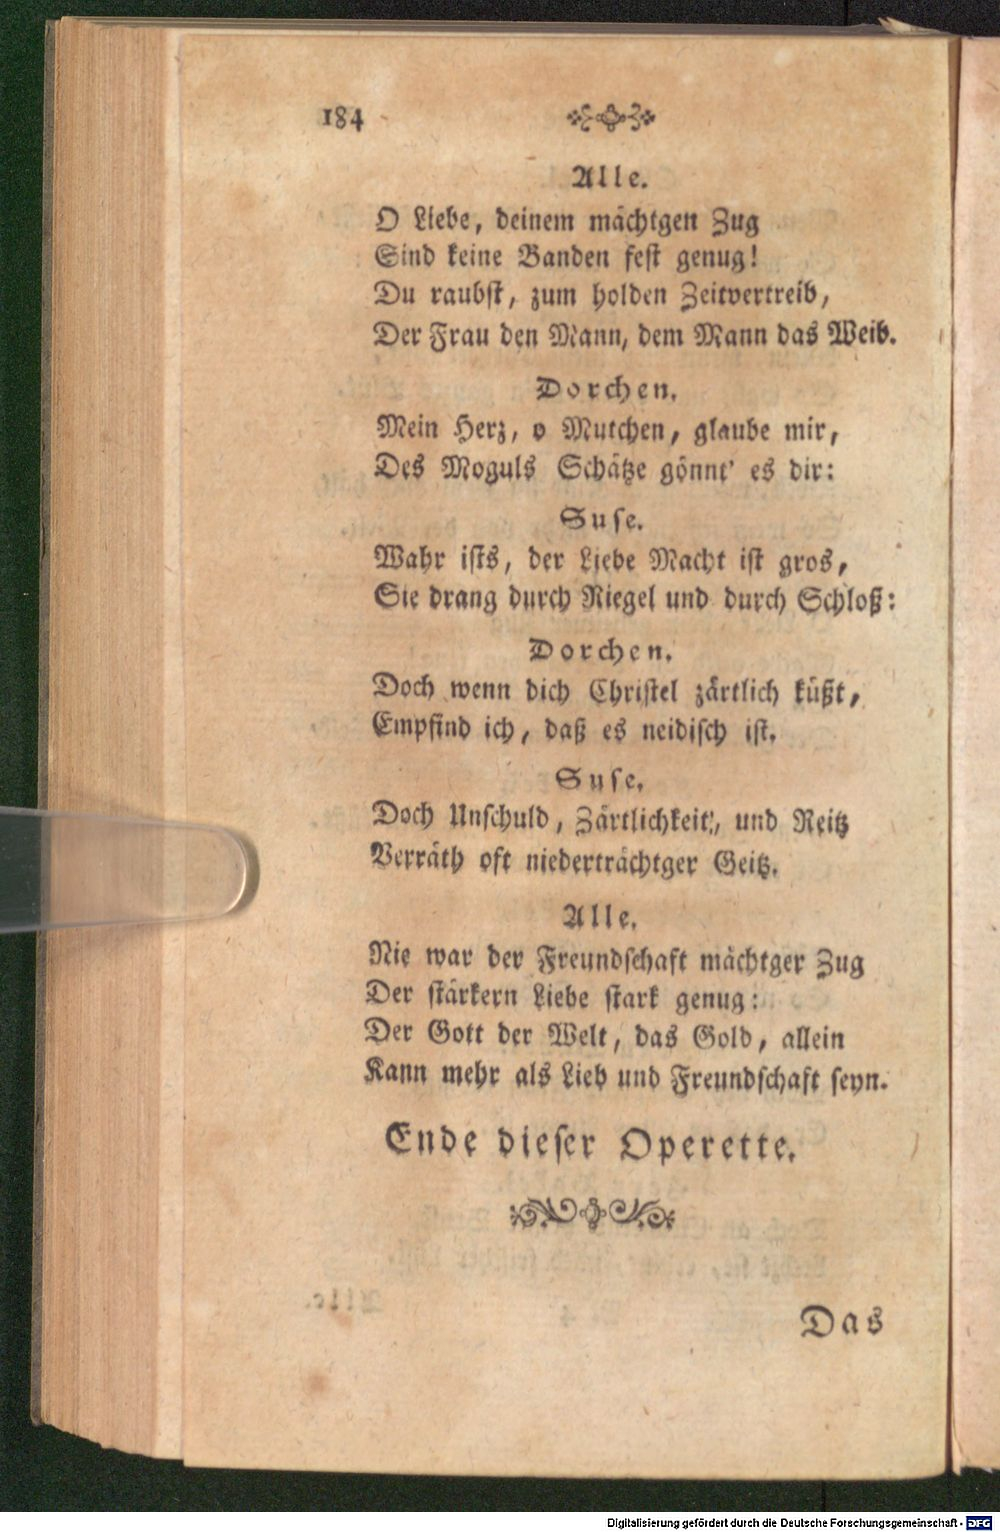 184
Alle.
O Liebe, deinem mächtgen Zug
Sind keine Banden fest genug!
Du raubst, zum holden Zeitvertreib,
Der Frau den Mann, dem Mann das Weib.
Dorchen.
Mein Herz, o Mutchen, glaube mir,
Des Moguls Schätze gönnt' es dir:
Suse.
Wahr ists, der Liebe Macht ist gros,
Sie drang durch Riegel und durch Schloß:
Dorchen.
Doch wenn dich Christel zärtlich küßt,
Empfind ich, daß es neidisch ist.
Suse.
Doch Unschuld, Zärtlichkeit, und Reitz
Verräth oft niederträchtger Geitz.
Alle.
Nie war der Freundschaft mächtger Zug
Der stärkern Liebe stark genug:
Der Gott der Welt, das Gold, allein
Kann mehr als Lieb und Freundschaft seyn.
Ende dieser Operette.
Das
Digitalisierung gefördert durch die Deutsche Forschungsgemeinschaft - DFG